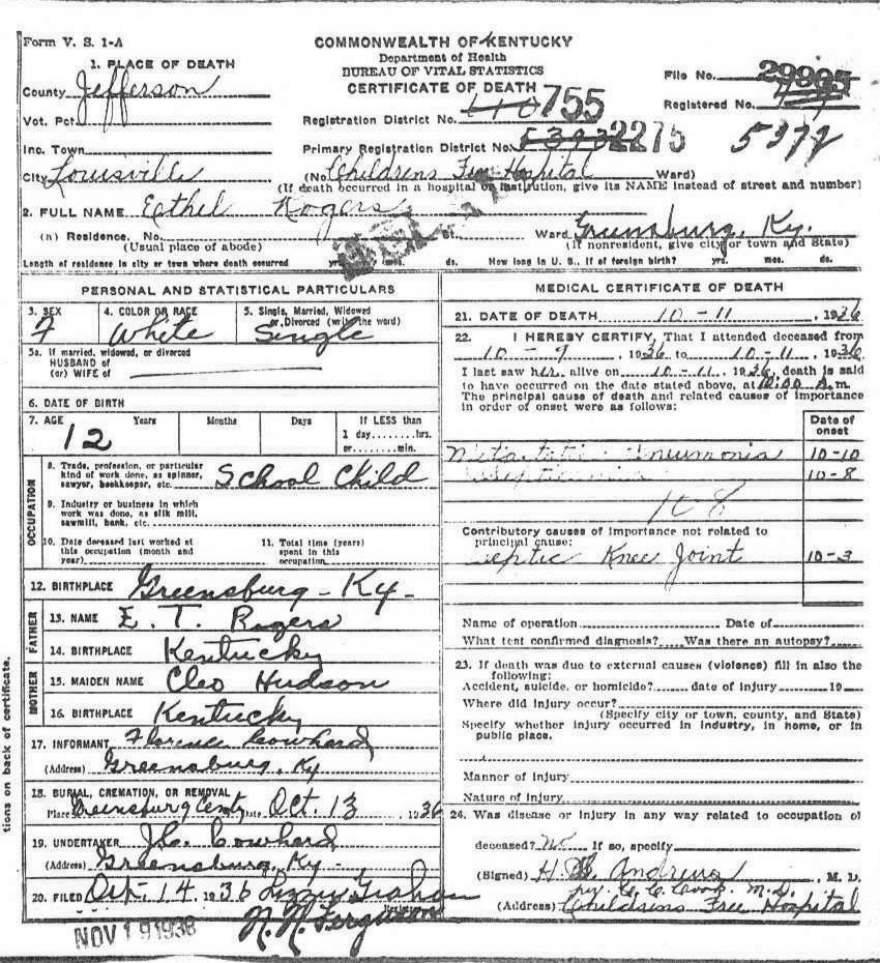 Form V. S. 1-A
COMMONWEALTH OF KENTUCKY
Department of Health
BUREAU OF VITAL STATISTICS
CERTIFICATE OF DEATH
File No.
Registered No.
5372
1. PLACE OF DEATH
County Jefferson
Vot. Pct
Inc. Town
City Louisville
Registration District No. 755
Primary Registration District No. 2275
(No. Childrens Free Hospital Ward)
(If death occurred in a hospital or institution, give its NAME instead of street and number)
2. FULL NAME Ethel Rogers
(a) Residence. No. St. Ward Greensburg, Ky.
(Usual place of abode) (If nonresident, give city or town and State)
Length of residence in city or town where death occurred yrs. mos. ds. How long in U. S., if of foreign birth? yrs. mos. ds.
PERSONAL AND STATISTICAL PARTICULARS
3. SEX F
4. COLOR OR RACE White
5. Single, Married, Widowed or Divorced (write the word) Single
5a. If married, widowed, or divorced
HUSBAND of
(or) WIFE of
6. DATE OF BIRTH
7. AGE Years Months Days If LESS than
12 1 day........hrs.
or........min.
OCCUPATION
8. Trade, profession, or particular
kind of work done, as spinner,
sawyer, bookkeeper, etc. School Child
9. Industry or business in which
work was done, as silk mill,
sawmill, bank, etc.
10. Date deceased last worked at
this occupation (month and
year)
11. Total time (years)
spent in this
occupation
12. BIRTHPLACE Greensburg - Ky -
FATHER
13. NAME E. T. Rogers
14. BIRTHPLACE Kentucky
MOTHER
15. MAIDEN NAME Cleo Hudson
16. BIRTHPLACE Kentucky
17. INFORMANT Florence Cowherd
(Address) Greensburg, Ky
18. BURIAL, CREMATION, OR REMOVAL
Place Greensburg Date Oct. 13, 1936
19. UNDERTAKER J.C. Cowherd
(Address) Greensburg, Ky -
20. FILED Oct. 14 1936 Lizzy Graham
N. N. Ferguson
Registrar
NOV 19 1936
tions on back of certificate.
MEDICAL CERTIFICATE OF DEATH
21. DATE OF DEATH 10 - 11, 1936
22. I HEREBY CERTIFY, That I attended deceased from
10 - 9, 1936 to 10 - 11, 1936
I last saw her alive on 10 - 11, 1936, death is said
to have occurred on the date stated above, at m.
The principal cause of death and related causes of importance
in order of onset were as follows:
Date of
onset
Pneumonia 10-10
10-8
Contributory causes of importance not related to
principal cause:
Septic Knee Joint 10-3
Name of operation Date of
What test confirmed diagnosis? Was there an autopsy?
23. If death was due to external causes (violence) fill in also the
following:
Accident, suicide, or homicide? date of injury 19
Where did injury occur?
(Specify city or town, county, and State)
Specify whether injury occurred in industry, in home, or in
public place.
Manner of injury
Nature of injury
24. Was disease or injury in any way related to occupation of
deceased? No If so, specify
(Signed) Andrews, M. D.
per C. C. Cook M.D.
(Address) Childrens Free Hospital